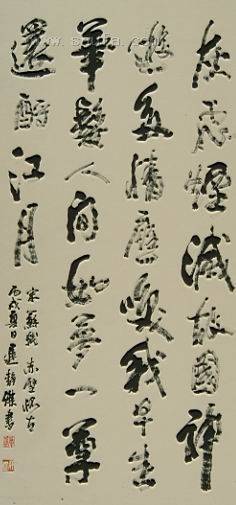 灰飛煙滅故國神
遊多情應咲我早生
華髮人間如夢一尊
還酹江月
宋蘇軾赤壁懷古
丙戌夏日書